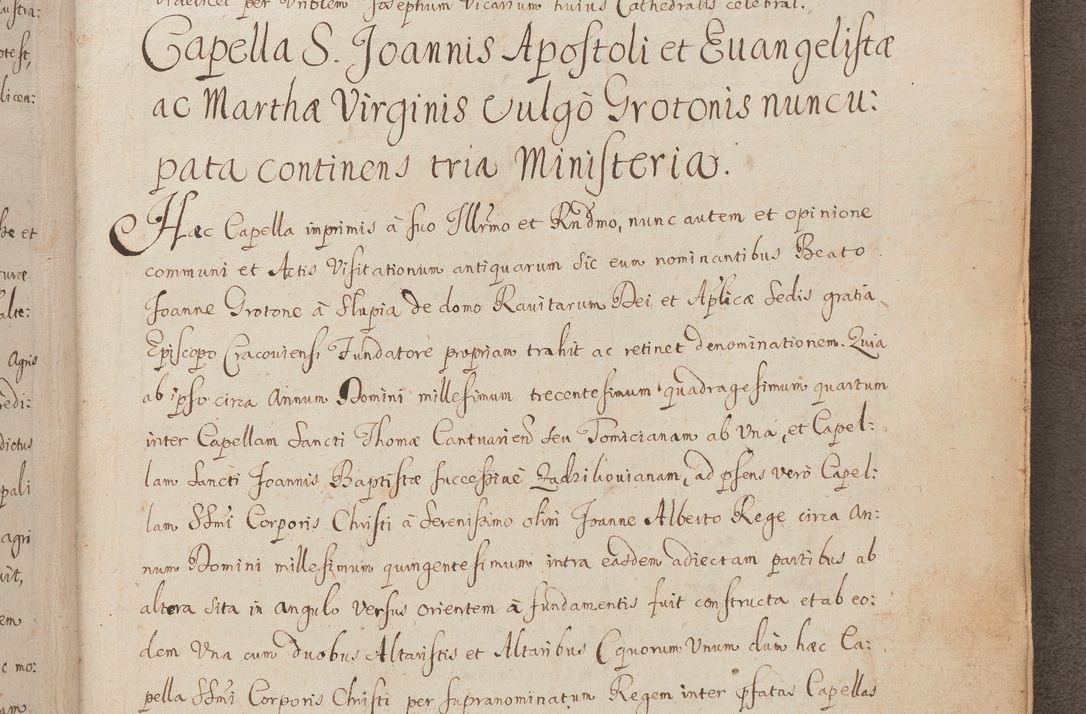 videlicet per Vnblem Josephum Vicarium huius Cathedralis celebrat.
Capella S. Joannis Apostoli et Euangelistæ
ac Marthæ Virginis Vulgò Grotonis nuncu:
pata continens tria Ministeria.
Hæc Capella inprimis à suo Illrmo et Rndmo, nunc autem et opinione
communi et Actis Visitationum antiquarum sic eum nominantibus Beato
Joanne Grotone à Slupia de domo Rauitarum Dei et Aplicæ Sedis gratia
Episcopo Cracouiensi Fundatore propriam trahit ac retinet denominationem. Quia
ab ipso circa Annum Domini millesimum trecentesimum quadragesimum quartum
inter Capellam Sancti Thomæ Cantuarien seu Tomicianam ab Vna, et Capel:
lam Sancti Joannis Baptistæ successiuè Zadziliouianam, ad psens verò Capel:
lam SSmi Corporis Christi à Serenissimo olim Joanne Alberto Rege circa An:
num Domini millesimum quingentesimum intra easdem adiectam partibus ab
altera sita in angulo versus orientem à fundamentis fuit constructa et ab eo:
dem Vna cum duobus Altaristis et Altaribus (quorum Vnum dum hæc Ca:
pella SSmi Corporis Christi per supranominatum Regem inter pfatas Capellas